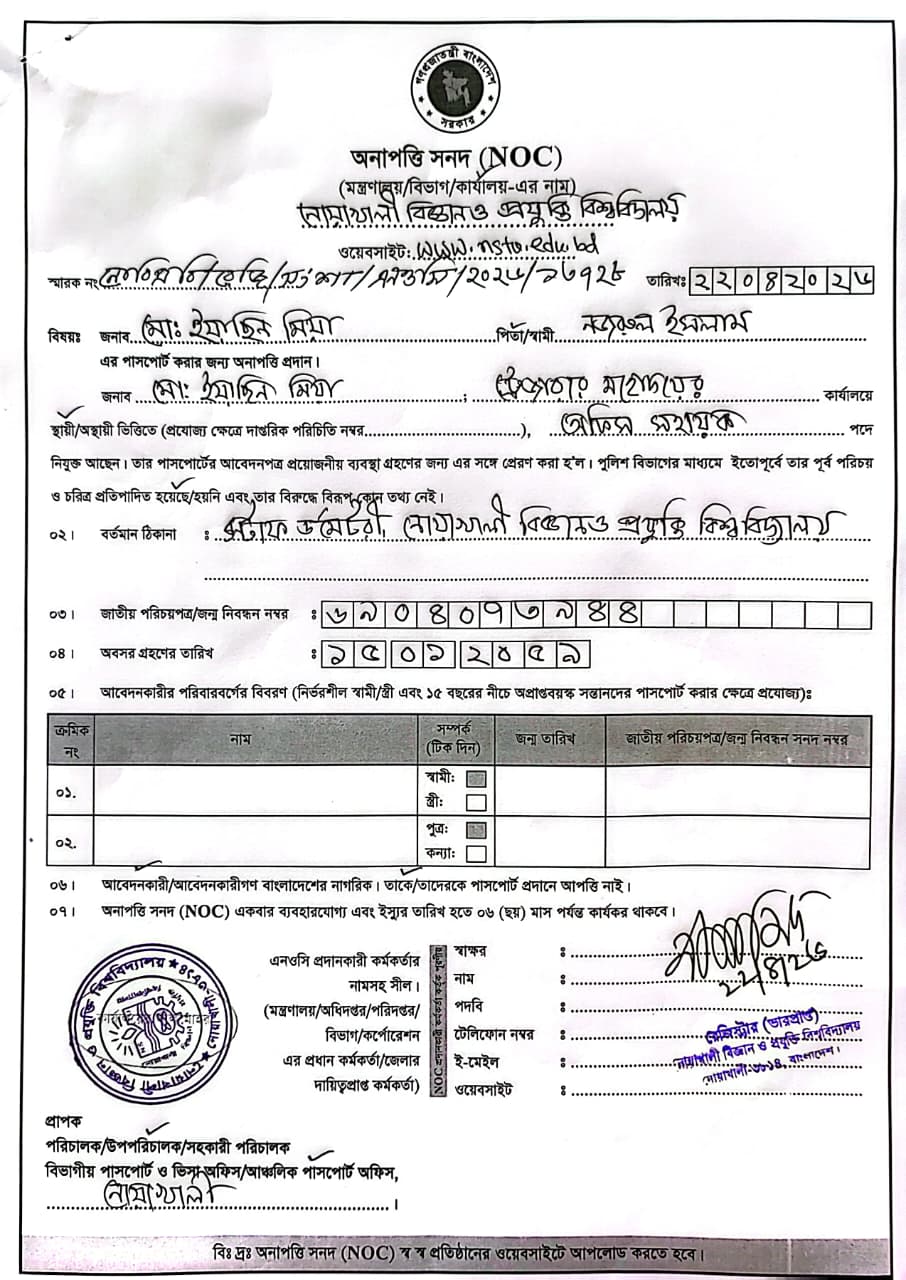 গণপ্রজাতন্ত্রী বাংলাদেশ
সরকার
অনাপত্তি সনদ (NOC)
(মন্ত্রণালয়/বিভাগ/কার্যালয়-এর নাম)
নোয়াখালী বিজ্ঞান ও প্রযুক্তি বিশ্ববিদ্যালয়
ওয়েবসাইট: www.nstu.edu.bd
স্মারক নং নোবিপ্রবি/রেজি/সংশা/এনওসি/২০২৬/১৬৭২৮ তারিখঃ ২২০৪২০২৬
বিষয়ঃ জনাব মোঃ ইয়াছিন মিয়া পিতা/স্বামী নজরুল ইসলাম
এর পাসপোর্ট করার জন্য অনাপত্তি প্রদান।
জনাব মোঃ ইয়াছিন মিয়া ; রেজিস্ট্রার মহোদয়ের কার্যালয়ে
স্থায়ী/অস্থায়ী ভিত্তিতে (প্রযোজ্য ক্ষেত্রে দাপ্তরিক পরিচিতি নম্বর), অফিস সহায়ক পদে
নিযুক্ত আছেন। তার পাসপোর্টের আবেদনপত্র প্রয়োজনীয় ব্যবস্থা গ্রহণের জন্য এর সঙ্গে প্রেরণ করা হ'ল। পুলিশ বিভাগের মাধ্যমে ইতোপূর্বে তার পূর্ব পরিচয়
ও চরিত্র প্রতিপাদিত হয়েছে/হয়নি এবং তার বিরুদ্ধে বিরূপ কোন তথ্য নেই।
০২। বর্তমান ঠিকানা : স্টাফ ডর্মেটরী, নোয়াখালী বিজ্ঞান ও প্রযুক্তি বিশ্ববিদ্যালয়
০৩। জাতীয় পরিচয়পত্র/জন্ম নিবন্ধন নম্বর : ৬৯০৪০৭৩৯৪৪
০৪। অবসর গ্রহণের তারিখ : ১৫০১২০৫৯
০৫। আবেদনকারীর পরিবারবর্গের বিবরণ (নির্ভরশীল স্বামী/স্ত্রী এবং ১৫ বছরের নীচে অপ্রাপ্তবয়স্ক সন্তানদের পাসপোর্ট করার ক্ষেত্রে প্রযোজ্য)ঃ
ক্রমিক নং নাম সম্পর্ক (টিক দিন) জন্ম তারিখ জাতীয় পরিচয়পত্র/জন্ম নিবন্ধন সনদ নম্বর
০১. স্বামী:
স্ত্রী:
০২. পুত্র:
কন্যা:
০৬। আবেদনকারী/আবেদনকারীগণ বাংলাদেশের নাগরিক। তাকে/তাদেরকে পাসপোর্ট প্রদানে আপত্তি নাই।
০৭। অনাপত্তি সনদ (NOC) একবার ব্যবহারযোগ্য এবং ইস্যুর তারিখ হতে ০৬ (ছয়) মাস পর্যন্ত কার্যকর থাকবে।
নোয়াখালী বিজ্ঞান ও প্রযুক্তি বিশ্ববিদ্যালয়
এনওসি প্রদানকারী কর্মকর্তার
নামসহ সীল।
(মন্ত্রণালয়/অধিদপ্তর/পরিদপ্তর/
বিভাগ/কর্পোরেশন
এর প্রধান কর্মকর্তা/জেলার
দায়িত্বপ্রাপ্ত কর্মকর্তা)
স্বাক্ষর :
২২/৪/২৬
নাম :
পদবি :
টেলিফোন নম্বর :
ই-মেইল :
ওয়েবসাইট :
রেজিস্ট্রার (ভারপ্রাপ্ত)
নোয়াখালী বিজ্ঞান ও প্রযুক্তি বিশ্ববিদ্যালয়
নোয়াখালী-৩৮১৪, বাংলাদেশ।
প্রাপক
পরিচালক/উপপরিচালক/সহকারী পরিচালক
বিভাগীয় পাসপোর্ট ও ভিসা অফিস/আঞ্চলিক পাসপোর্ট অফিস,
নোয়াখালী।
বিঃ দ্রঃ অনাপত্তি সনদ (NOC) স্ব স্ব প্রতিষ্ঠানের ওয়েবসাইটে আপলোড করতে হবে।